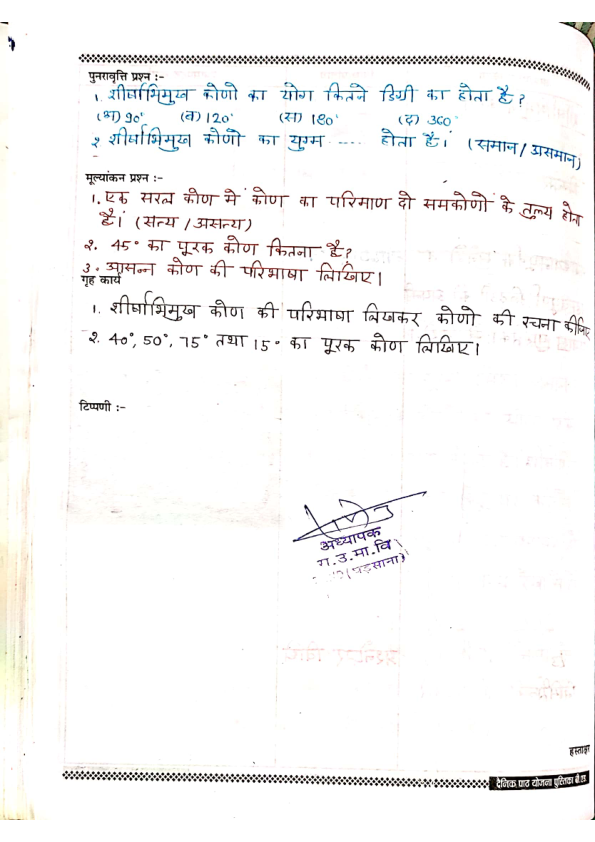 पुनरावृत्ति प्रश्न :-
1. शीर्षाभिमुख कोणो का योग कितने डिग्री का होता है?
(अ) 90° (ब) 120° (स) 180° (द) 360°
2 शीर्षाभिमुख कोणो का युग्म .... होता है। (समान / असमान)
मूल्यांकन प्रश्न :-
1. एक सरल कोण में कोण का परिमाण दो समकोणों के तुल्य होता
है। (सत्य / असत्य)
2. 45° का पूरक कोण कितना है?
3. आसन्न कोण की परिभाषा लिखिए।
गृह कार्य
1. शीर्षाभिमुख कोण की परिभाषा लिखकर कोणो की रचना कीजिए
2. 40°, 50°, 75° तथा 15° का पूरक कोण लिखिए।
टिप्पणी :-
अध्यापक
ग.उ.मा.वि
(घड़साना)
हस्ताक्षर
दैनिक पाठ योजना पुस्तिका बी.एड.